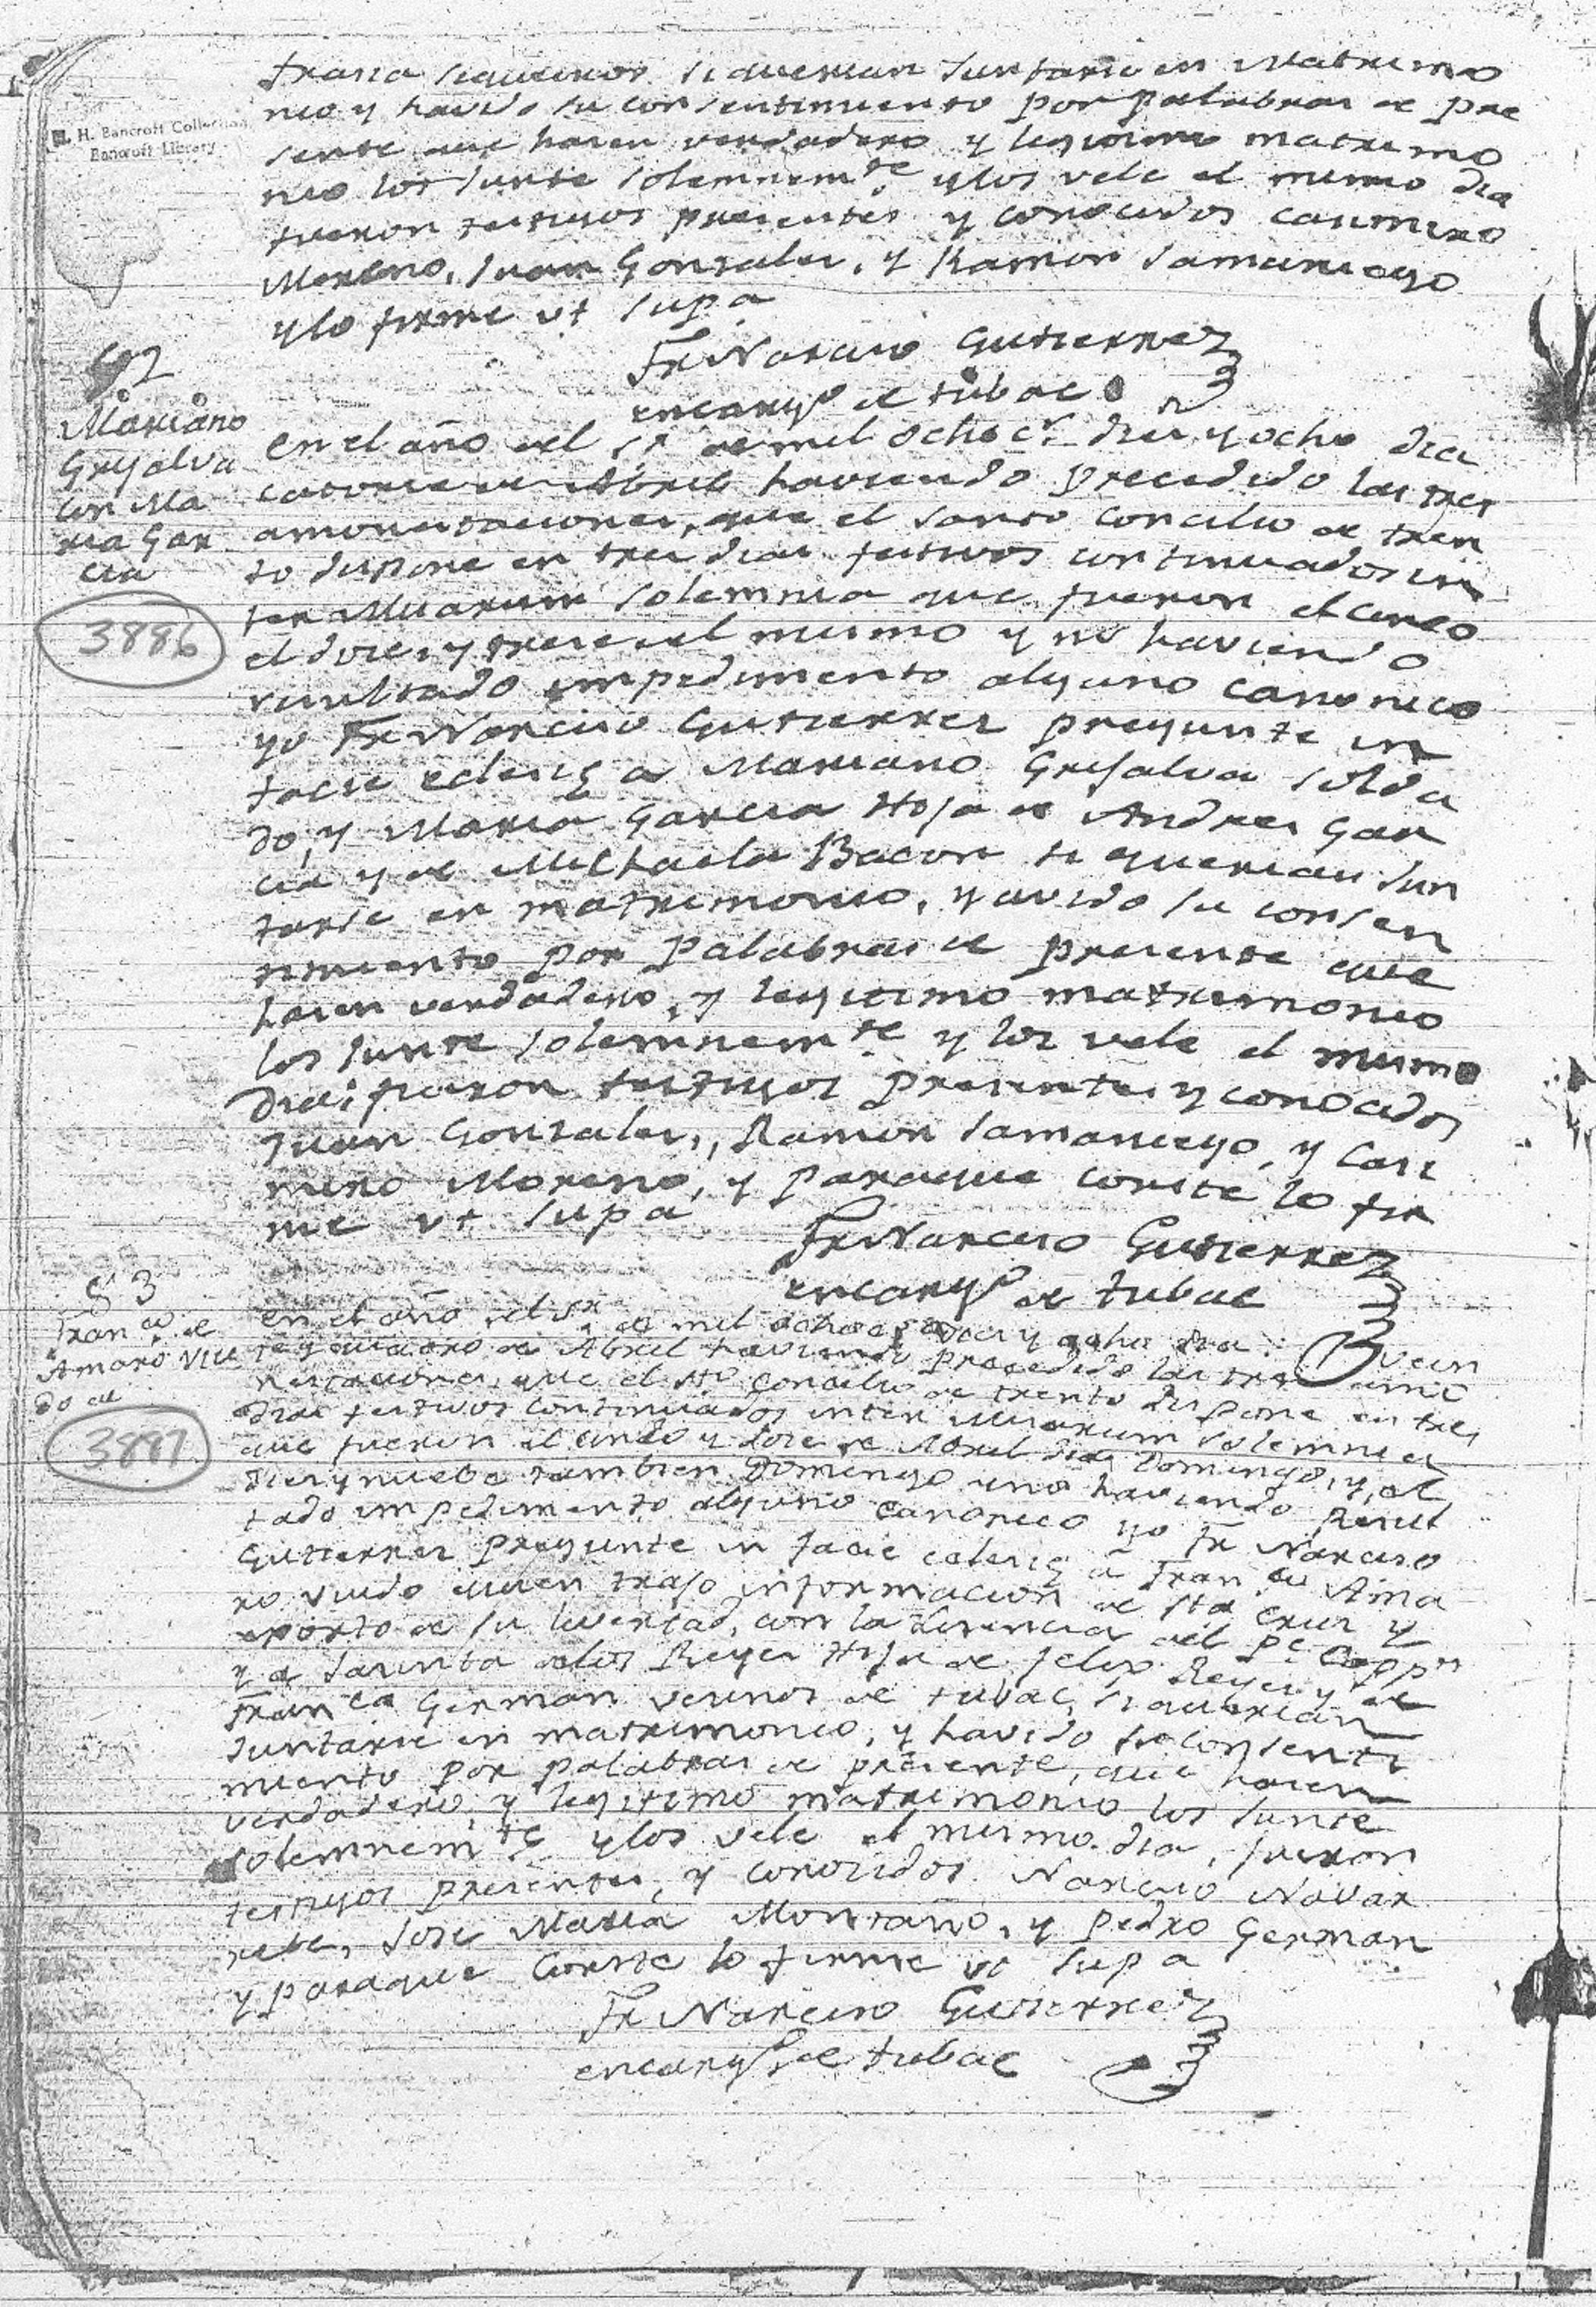 trasia siqueiros si querian Juntarse en Matrimo
nio y havido su consentimiento por palabras de pre
sente que hacen verdadero y legitimo matrimo
nio los Junte solemnemte y los vele el mismo dia
fueron testigos presentes y conocidos casimiro
Moreno, Juan Gonzales, y Ramon Samaniego
y lo firme ut supa
Fr Narciso Gutierrez
encargo de tubac
H. H. Bancroft Collection
Bancroft Library
52
Mariano
Grijalva
con Ma
ria Gar
cia
3886
en el año del Sr de mil ocho cs dies y ocho dia
catorce de Abril haviendo precedido las tres
amonestaciones, que el santo concilio de tren
to dispone en tres dias festivos continuados in
ter Misarum solemnia que fueron el cinco
el doce, y trece del mismo y no haviendo
resultado impedimento alguno canonico
yo Fr Narciso Gutierrez pregunte in
facie eclesię a Mariano Grijalva solda
do, y Maria Garcia Hija de Andres Gar
cia y de Michaela Bacon si querian Jun
tarse en matrimonio, y avido su consen
timiento por palabras de presente que
hacen verdadero, y legitimo matrimonio
los Junte solemnemte y los vele el mismo
Dia; fueron testigos presentes y conocidos
Juan Gonzales, Ramon Samaniego, y Casi
miro Moreno, y paraque conste lo fir
me ut supa
Fr Narciso Gutierrez
encargo de tubac
53
Franco de
Amaro viu
do de
3887
en el año del Sr de mil ocho cs dies y ocho dia vein
te y quatro de Abril haviendo precedido las tres amo
nestaciones, que el sto concilio de trento dispone en tres
dias festivos continuados inter Misarum solemnia
que fueron el cinco y doce de Abril dias Domingo, y, el
Dies y nuebe tambien Domingo y no haviendo Resul
tado impedimento alguno canonico yo Fr Narciso
Gutierrez pregunte in facie eclesię a Franco Ama
ro viudo quien trajo informacion de sta cruz y
exorto de su livertad, con la licencia del pe Cappn
y a Jacinta delos Reyes Hija de felip Reyes y de
Franca German vecinos de tubac, si querian
Juntarse en matrimonio, y havido su consenti
miento por palabras de presente, que hacen
verdadero, y legitimo matrimonio los Junte
solemnemte y los vele el mismo dia, fueron
testigos presentes, y conocidos Narciso Navar
rete, Jose Maria Montaño, y Pedro German
y paraque conste lo firme ut supa
Fr Narciso Gutierrez
encargo de tubac